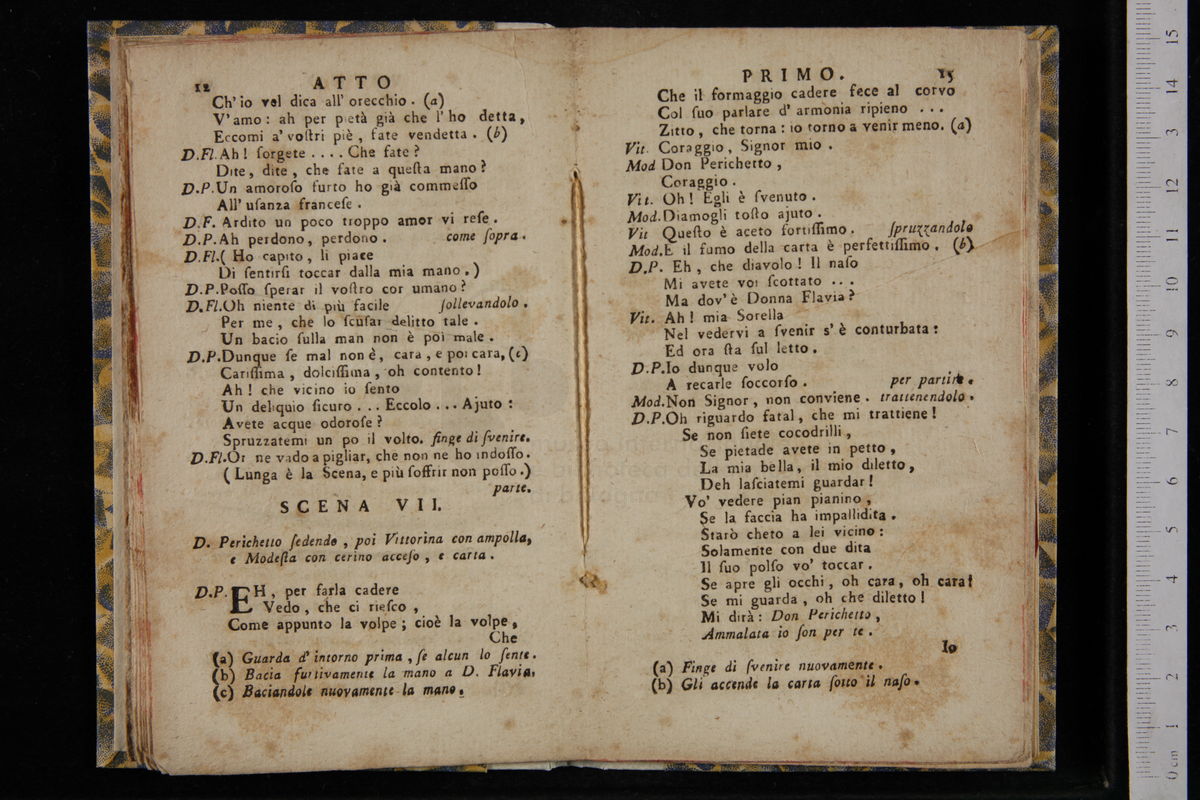 12 ATTO
Ch' io vel dica all' orecchio. (a)
V' amo: ah per pietà già che l' ho detta,
Eccomi a' voſtri piè, fate vendetta. (b)
D.Fl. Ah! ſorgete .... Che fate?
Dite, dite, che fate a queſta mano?
D.P. Un amoroſo furto ho già commeſſo
All' uſanza franceſe.
D.F. Ardito un poco troppo amor vi reſe.
D.P. Ah perdono, perdono. come ſopra.
D.Fl. ( Ho capito, li piace
Di ſentirſi toccar dalla mia mano.)
D.P. Poſſo ſperar il voſtro cor umano?
D.Fl. Oh niente di più facile ſollevandolo.
Per me, che lo ſcuſar delitto tale.
Un bacio ſulla man non è poi male.
D.P. Dunque ſe mal non è, cara, e poi cara, (c)
Cariſſima, dolciſſima, oh contento!
Ah! che vicino io ſento
Un deliquio ſicuro ... Eccolo ... Ajuto:
Avete acque odoroſe?
Spruzzatemi un po il volto. finge di ſvenire.
D.Fl. Or ne vado a pigliar, che non ne ho indoſſo.
( Lunga è la Scena, e più ſoffrir non poſſo.)
parte.
SCENA VII.
D. Perichetto ſedendo, poi Vittorina con ampolla,
e Modeſta con cerino acceſo, e carta.
D.P. EH, per farla cadere
Vedo, che ci rieſco,
Come appunto la volpe; cioè la volpe,
Che
(a) Guarda d' intorno prima, ſe alcun lo ſente.
(b) Bacia furtivamente la mano a D. Flavia.
(c) Baciandole nuovamente la mano.
PRIMO. 15
Che il formaggio cadere fece al corvo
Col ſuo parlare d' armonia ripieno ...
Zitto, che torna: io torno a venir meno. (a)
Vit. Coraggio, Signor mio.
Mod Don Perichetto,
Coraggio.
Vit. Oh! Egli è ſvenuto.
Mod. Diamogli toſto ajuto.
Vit Queſto è aceto fortiſſimo. ſpruzzandolo
Mod. E il fumo della carta è perfettiſſimo. (b)
D.P. Eh, che diavolo! Il naſo
Mi avete voi ſcottato ...
Ma dov' è Donna Flavia?
Vit. Ah! mia Sorella
Nel vedervi a ſvenir s' è conturbata:
Ed ora ſta ſul letto.
D.P. Io dunque volo
A recarle ſoccorſo. per partire.
Mod. Non Signor, non conviene. trattenendolo.
D.P. Oh riguardo fatal, che mi trattiene!
Se non ſiete cocodrilli,
Se pietade avete in petto,
La mia bella, il mio diletto,
Deh laſciatemi guardar!
Vo' vedere pian pianino,
Se la faccia ha impallidita.
Starò cheto a lei vicino:
Solamente con due dita
Il ſuo polſo vo' toccar.
Se apre gli occhi, oh cara, oh cara!
Se mi guarda, oh che diletto!
Mi dirà: Don Perichetto,
Ammalata io ſon per te.
Io
(a) Finge di ſvenire nuovamente.
(b) Gli accende la carta ſotto il naſo.
0 cm 1 2 3 4 5 6 7 8 9 10 11 12 13 14 15